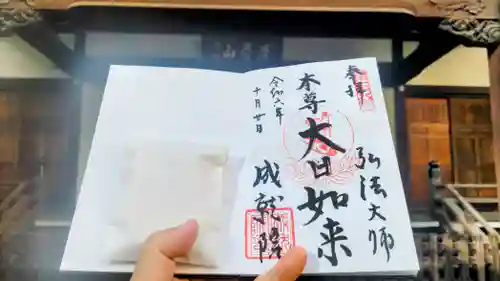 奉拝
弘法大師
本尊
大日如来
令和六年
十月廿日
成就院